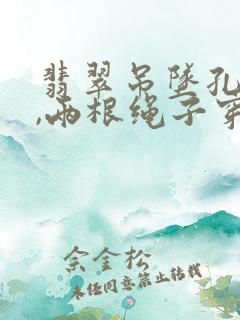 翡翠吊坠孔
,两根绳子穿
余金松
未经同意禁止转载